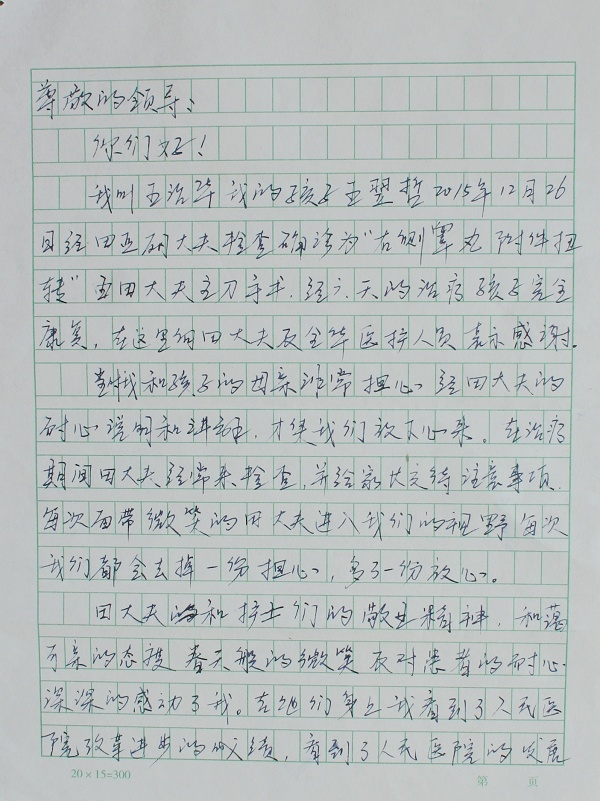 尊敬的领导：
你们好！
我叫王治华 我的孩子王翌哲 2015年12月26
日经田亚研大夫检查确诊为“右侧睾丸附件扭
转” 王田大夫主刀手术.经六天的治疗孩子完全
康复，在这里向田大夫及全体医护人员表示感谢.
当时我和孩子的母亲非常担心 经田大夫的
耐心说明和讲解，才使我们放下心来。在治疗
期间田大夫经常来检查，并给家长交待注意事项.
每次面带微笑的田大夫进入我们的视野 每次
我们都会去掉一份担心，多了一份放心。
田大夫和护士们的敬业精神，和蔼
可亲的态度 春天般的微笑 及对患者的耐心
深深的感动了我。在他们身上我看到了人民医
院改革进步的成绩，看到了人民医院的发展
20×15=300
第 页